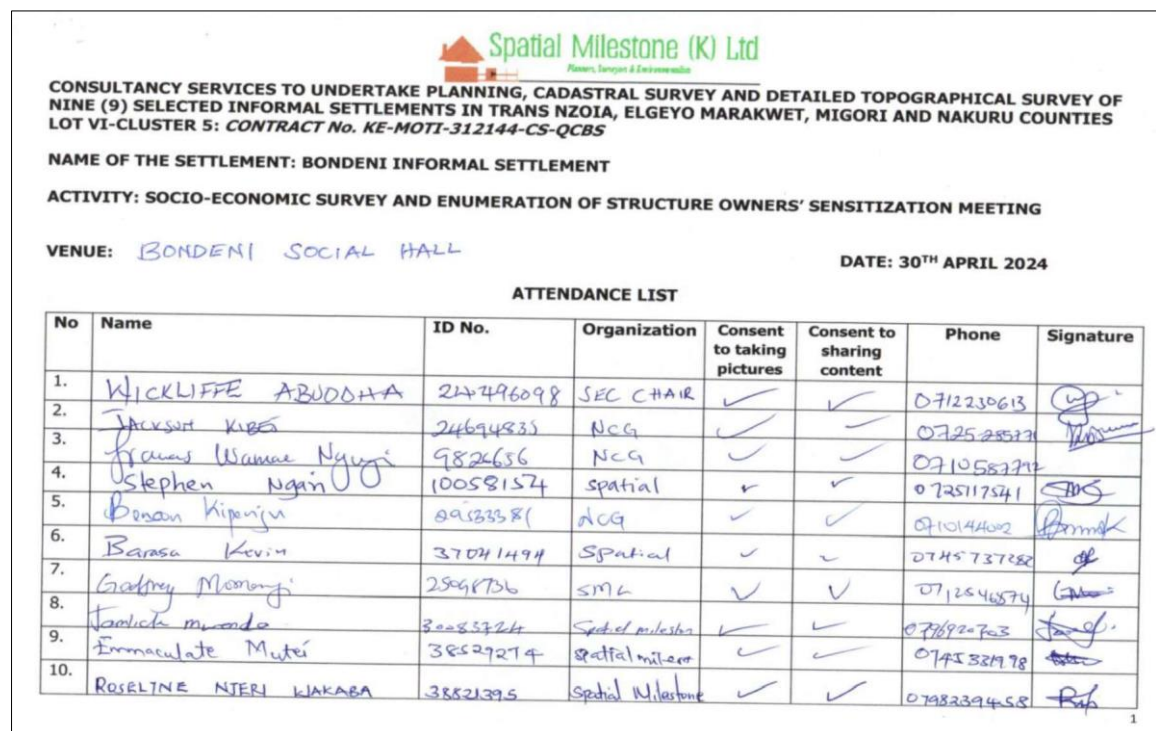 Spatial Milestone (K) Ltd
Planners, Surveyors & Environmentalists
CONSULTANCY SERVICES TO UNDERTAKE PLANNING, CADASTRAL SURVEY AND DETAILED TOPOGRAPHICAL SURVEY OF
NINE (9) SELECTED INFORMAL SETTLEMENTS IN TRANS NZOIA, ELGEYO MARAKWET, MIGORI AND NAKURU COUNTIES
LOT VI-CLUSTER 5: CONTRACT No. KE-MOTI-312144-CS-QCBS
NAME OF THE SETTLEMENT: BONDENI INFORMAL SETTLEMENT
ACTIVITY: SOCIO-ECONOMIC SURVEY AND ENUMERATION OF STRUCTURE OWNERS' SENSITIZATION MEETING
VENUE: BONDENI SOCIAL HALL
DATE: 30TH APRIL 2024
ATTENDANCE LIST
No Name ID No. Organization Consent to taking pictures Consent to sharing content Phone Signature
1. WICKLIFFE ABUODHA 247496098 SEC CHAIR ✓ ✓ 0712230613
2. JACKSON KIBE 24694835 NCG ✓ ✓
3. Francis Wamae Ngugi 9824656 NCG ✓ ✓ 0710587792
4. Stephen Ngari 100581574 Spatial ✓ ✓ 0725117541
5. Benson NCG ✓ ✓ 0710144002
6. Barasa Kevin 37041494 Spatial ✓ ✓ 0745737282
7. Godfrey 25098736 SML ✓ ✓ 0712546574
8. 30083724 ✓ ✓ 0796920703
9. Emmaculate Mutei 38529274 ✓ ✓
10. ROSELINE NJERI WAKABA 38821395 Spatial Milestone ✓ ✓
1